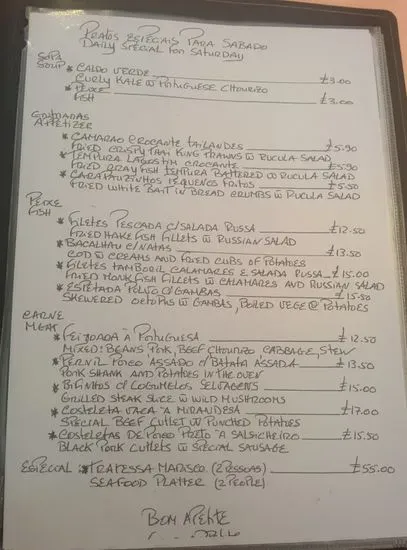 PRATOS ESPECIAIS PARA SABADO
DAILY SPECIAL FOR SATURDAY
SOPA
SOUP
* CALDO VERDE £3.00
CURLY KALE W PORTUGUESE CHOURIZO
* PEIXE £3.00
FISH
ENTRADAS
APPETIZER
* CAMARAO CROCANTE TAILANDES £5.90
FRIED CRISPY THAI KING PRAWNS W RUCULA SALAD
* TEMPURA LAGOSTIM CROCANTE £5.90
FRIED CRAYFISH TEMPURA BATTERED W RUCULA SALAD
* CARAPAUZINHOS PEQUENOS FRITOS £5.50
FRIED WHITE BAIT IN BREAD CRUMBS W RUCULA SALAD
PEIXE
FISH
* FILETES PESCADA C/SALADA RUSSA £12.50
FRIED HAKE FISH FILLETS W RUSSIAN SALAD
* BACALHAU C/NATAS £13.50
COD W CREAMS AND FRIED CUBS OF POTATOES
* FILETES TAMBORIL CALAMARES E SALADA RUSSA £15.00
FRIED MONK FISH FILLETS W CALAMARES AND RUSSIAN SALAD
* ESPETADA POLVO C/GAMBAS £15.50
SKEWERED OCTOPUS W GAMBAS, BOILED VEGE @ POTATOES
CARNE
MEAT
* FEIJOADA À PORTUGUESA £12.50
MIXED: BEANS PORK, BEEF CHOURIZO CABBAGE, STEW
* PERNIL PORCO ASSADO C/BATATA ASSADA £13.50
PORK SHANK AND POTATOES IN THE OVEN
* BIFINHOS C/COGUMELOS SELVAGENS £15.00
GRILLED STEAK SLICE W WILD MUSHROOMS
* COSTELETA VACA Á MIRANDESA £17.00
SPECIAL BEEF CUTLET W PUNCHED POTATOES
* COSTELETAS DE PORCO PRETO Á SALSICHEIRO £15.50
BLACK PORK CUTLETS W SPECIAL SAUSAGE
ESPECIAL: * TRAVESSA MARISCO (2 PESSOAS) £55.00
SEAFOOD PLATTER (2 PEOPLE)
BOM APETITE